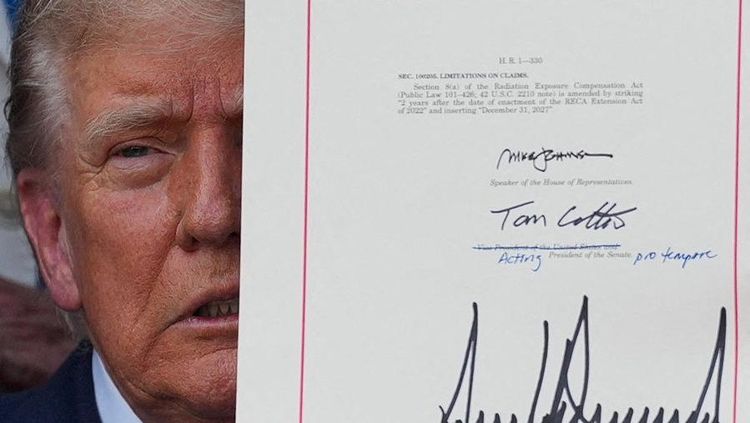 H. R. 1—330
SEC. 100205. LIMITATIONS ON CLAIMS.
Section 8(a) of the Radiation Exposure Compensation Act
(Public Law 101–426; 42 U.S.C. 2210 note) is amended by striking
"2 years after the date of enactment of the RECA Extension Act
of 2022" and inserting "December 31, 2027".
Mike Johnson
Speaker of the House of Representatives.
Tom Cotton
Vice President of the United States and
Acting President of the Senate pro tempore